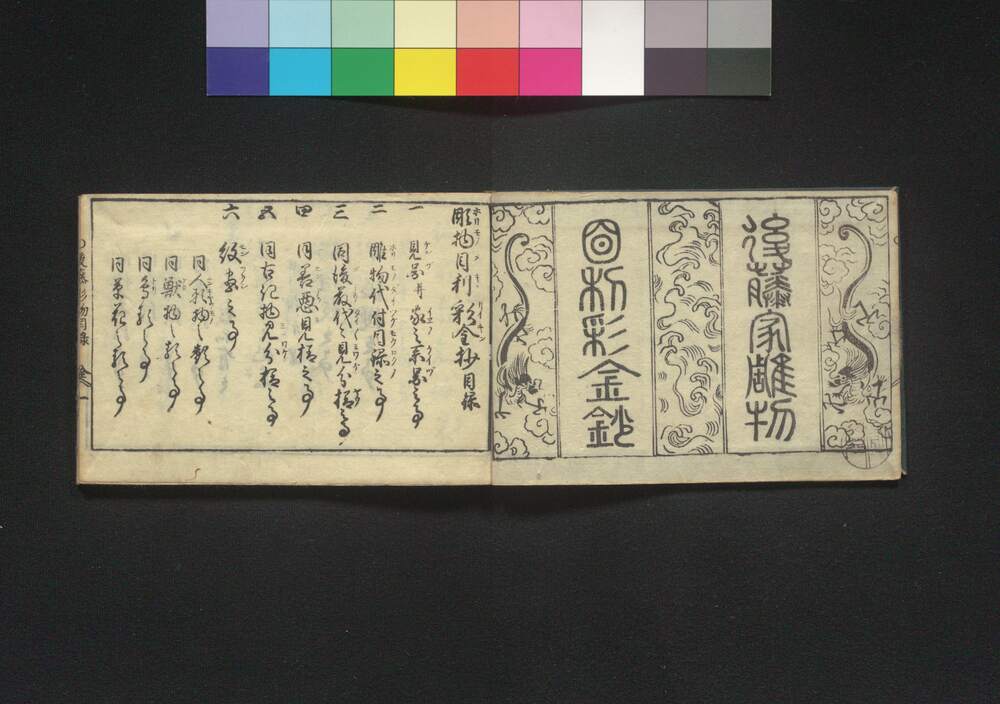 後藤家雕物
目利彩金鈔
彫物目利彩金抄目録
一 見出并家之系図之事
二 雕物代付目録之事
三 同後家代之見分様之事
四 同善悪見様之事
五 同古作物見分様之事
六 紋尽之事
同人形物之類之事
同獣物之類之事
同鳥類之事
同草花之類之事